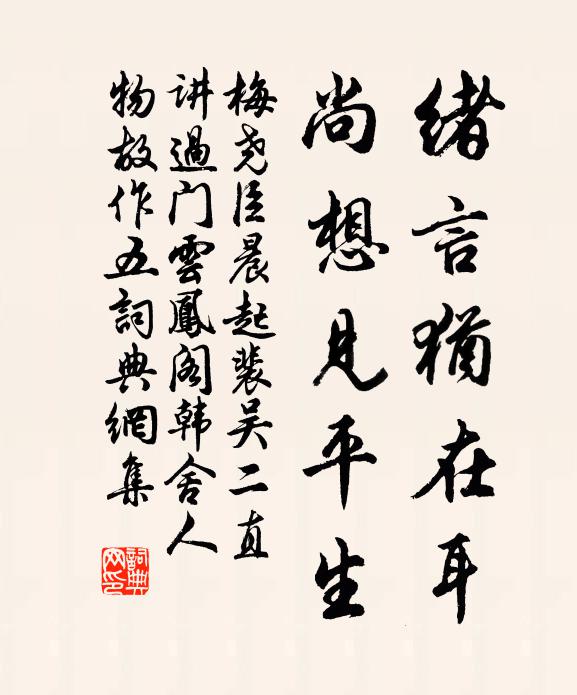 绪言犹在耳
尚想见平生
梅尧臣晨起裴吴二直
讲過门雲鳳阁韩舍人
物故作五詞典網集
詞典网印